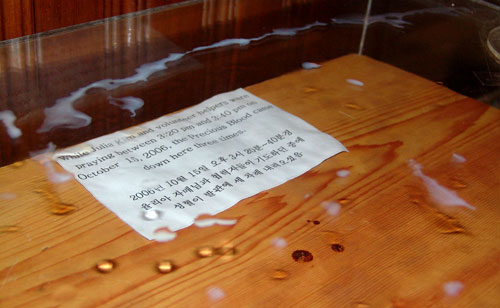 While Julia Kim and volunteer helpers were
praying between 3:20 pm and 3:40 pm on
October 15, 2006, the Precious Blood came
down here three times.
2006년 10월 15일 오후 3시 20분~40분경
율리아 자매님과 협력자들이 기도하던 중에
성혈이 발판에 세 차례 내려오셨음